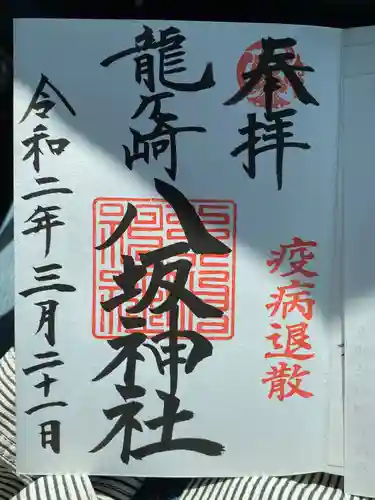 奉拝
疫病退散
龍ケ崎
八坂神社
令和二年三月二十一日